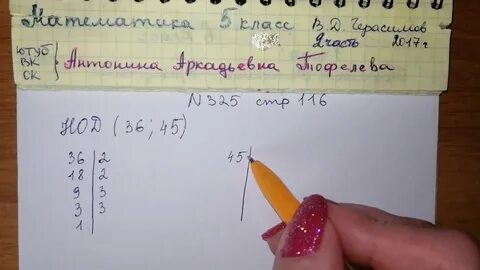 Математика 5 класс В. Д. Герасимов
2 часть 2017 г
ЮТУБ
ВК
ОК
Антонина Аркадьевна Тюфелева
N 325 стр 116
НОД (36; 45)
36 | 2 45 |
18 | 2
9 | 3
3 | 3
1 |